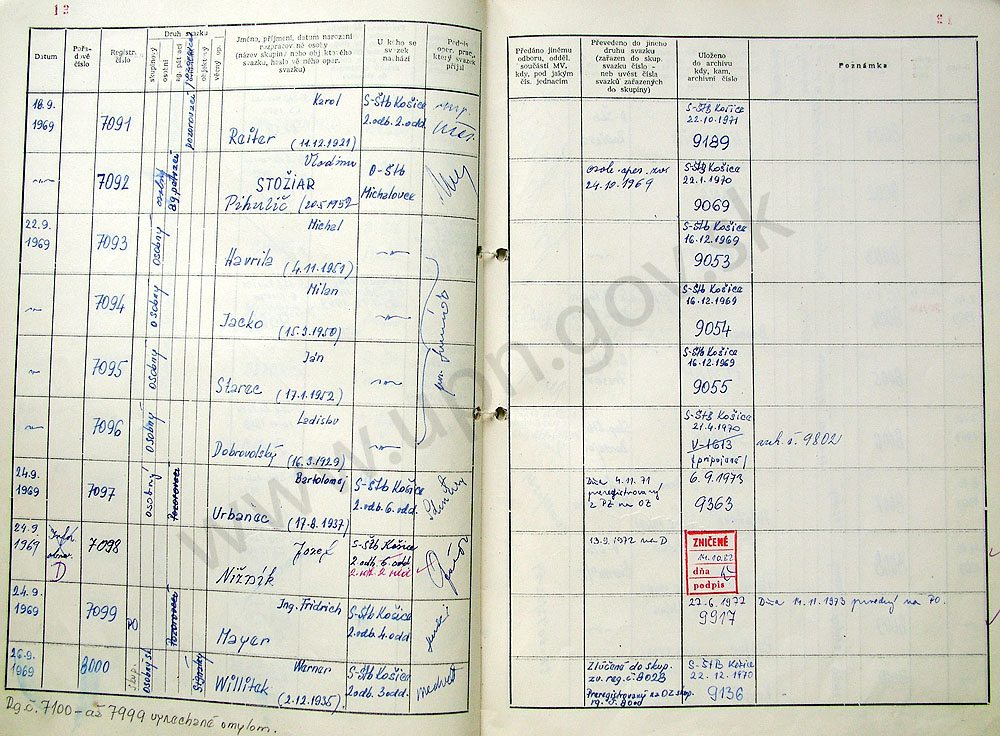 13
Datum
Pořadové číslo
Registr. číslo
Druh svazku
skupinový
osobní
objektový
Jméno, příjmení, datum narození
rozpracované osoby
(název skupiny nebo objektového
svazku, heslo věného opar.
svazku)
U koho se
svazek
nachází
Podpis
oper. prac.
který svazek
přijal
18.9.
1969
7091
pozorovací
Karol
Reiter (11.12.1921)
S-Štb Košice
2.odb. 2.odd.
7092
Vladimír
STOŽIAR
Pihulič (20.5.1952
O-Štb
Michalovce
22.9.
1969
7093
osobný
Michal
Havrila (4.11.1951)
7094
osobný
Milan
Jacko (15.3.1950)
7095
osobný
Ján
Starec (17.1.1952)
7096
osobný
Ladislav
Dobrovolský (16.3.1929)
24.9.
1969
7097
osobný
Pozorovací
Bartolomej
Urbanec (17.8.1937)
S-Štb Košice
2.odb. 6.odd.
24.9.
1969
D
7098
Jozef
Nižník
S-Štb Košice
2.odb. 6.odd
2.odb. 2.odd
24.9.
1969
7099
PO
Pozorovací
Ing. Fridrich
Mayer
S-Štb Košice
2.odb. 4.odd.
26.9.
1969
8000
skup.
osobný
Signálny
Werner
Willitek
(2.12.1935)
S-Štb Košice
2odb. 3odd.
Rg.č. 7100 - až 7999 vynechané omylom.
Předáno jinému
odboru, odděl.
součásti MV,
kdy, pod jakým
čís. jednacím
Převedeno do jiného
druhu svazku
(zařazen do skup.
svazku číslo -
neb uvést čísla
svazků zařazených
do skupiny)
Uloženo
do archivu
kdy, kam,
archivní číslo
Poznámka
S-Štb Košice
22.10.1971
9189
24.10.1969
S-Štb Košice
22.1.1970
9069
S-Štb Košice
16.12.1969
9053
S-Štb Košice
16.12.1969
9054
S-Štb Košice
16.12.1969
9055
S-Štb Košice
21.4.1970
V-1613
(pripojené)
arch. č. 9802
Dňa 4.11.71
preregistrovaný
z PZ na OZ
6.9.1973
9363
13.9.1972 na D
ZNIČENÉ
dňa
podpis
22.6.1972
9917
Dňa 14.11.1973 prevedený na PO.
Zlúčené do skup.
zv. reg.č. 8028
Preregistrovaný na OZ skup.
S-Štb Košice
22.12.1970
9136
www.upn.gov.sk